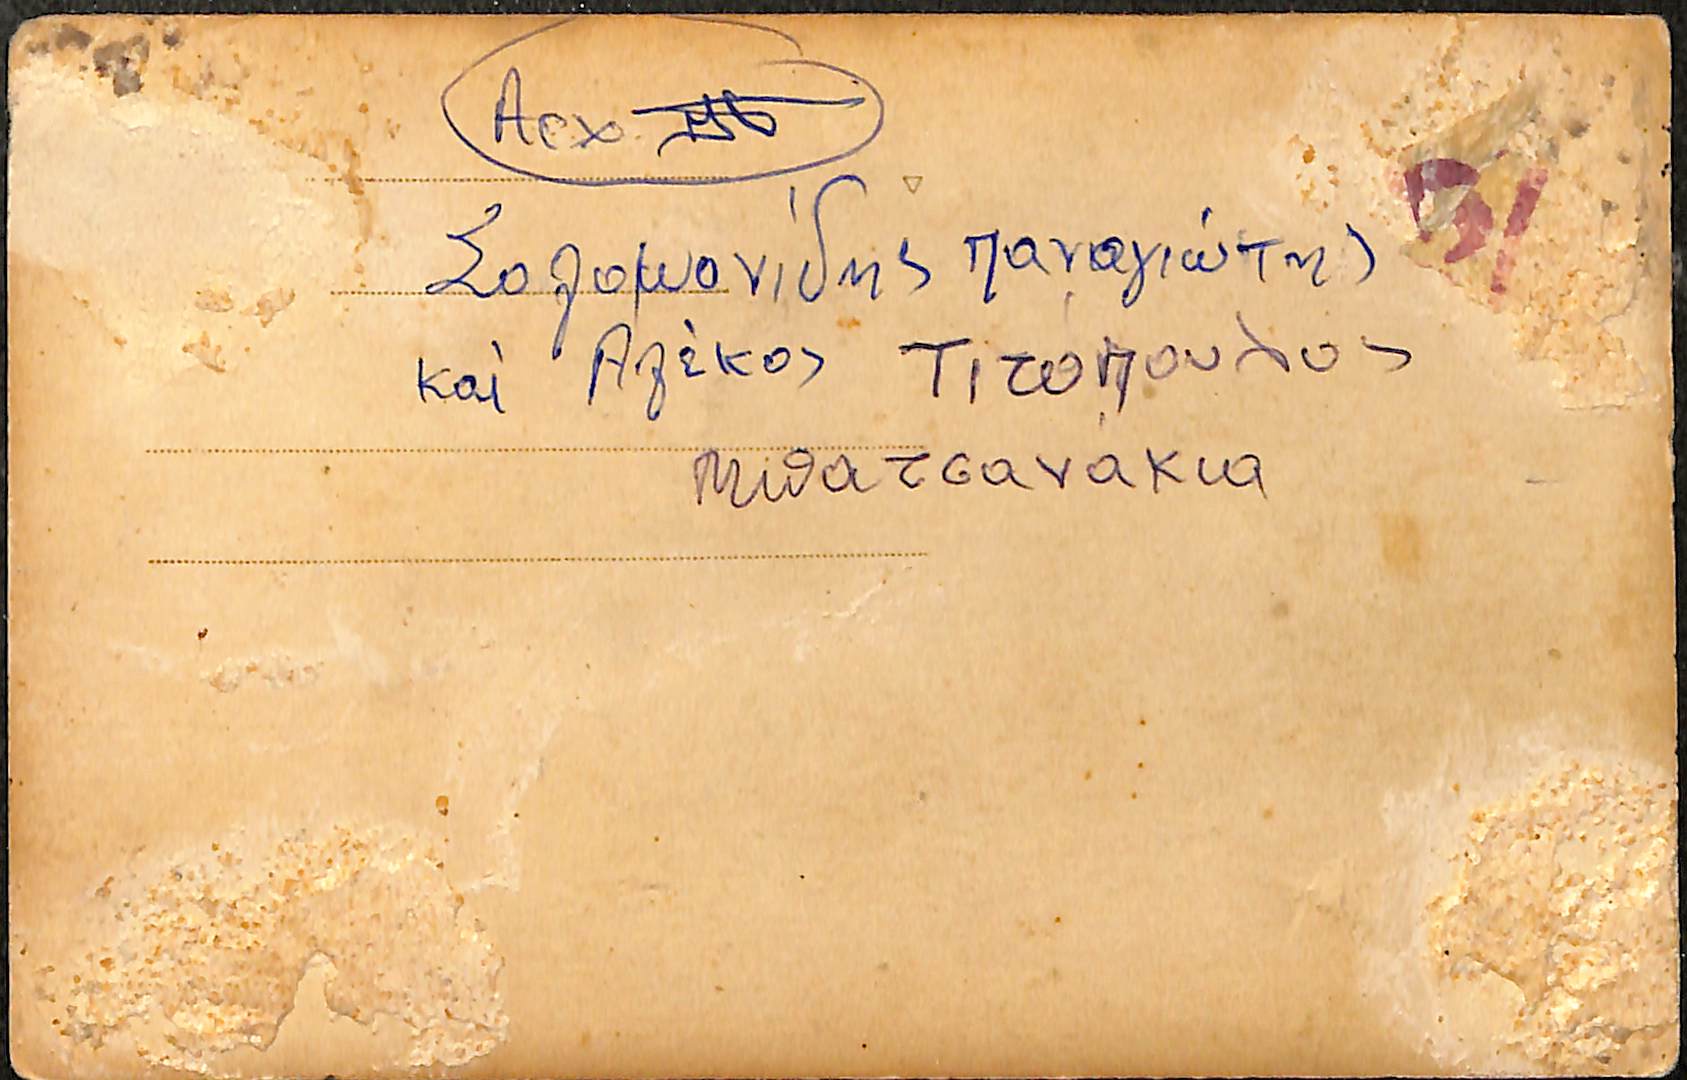 Αρχ.
Σολομωνίδης Παναγιώτης
καὶ Αλέκος Τιτόπουλος
Μπατσανάκια